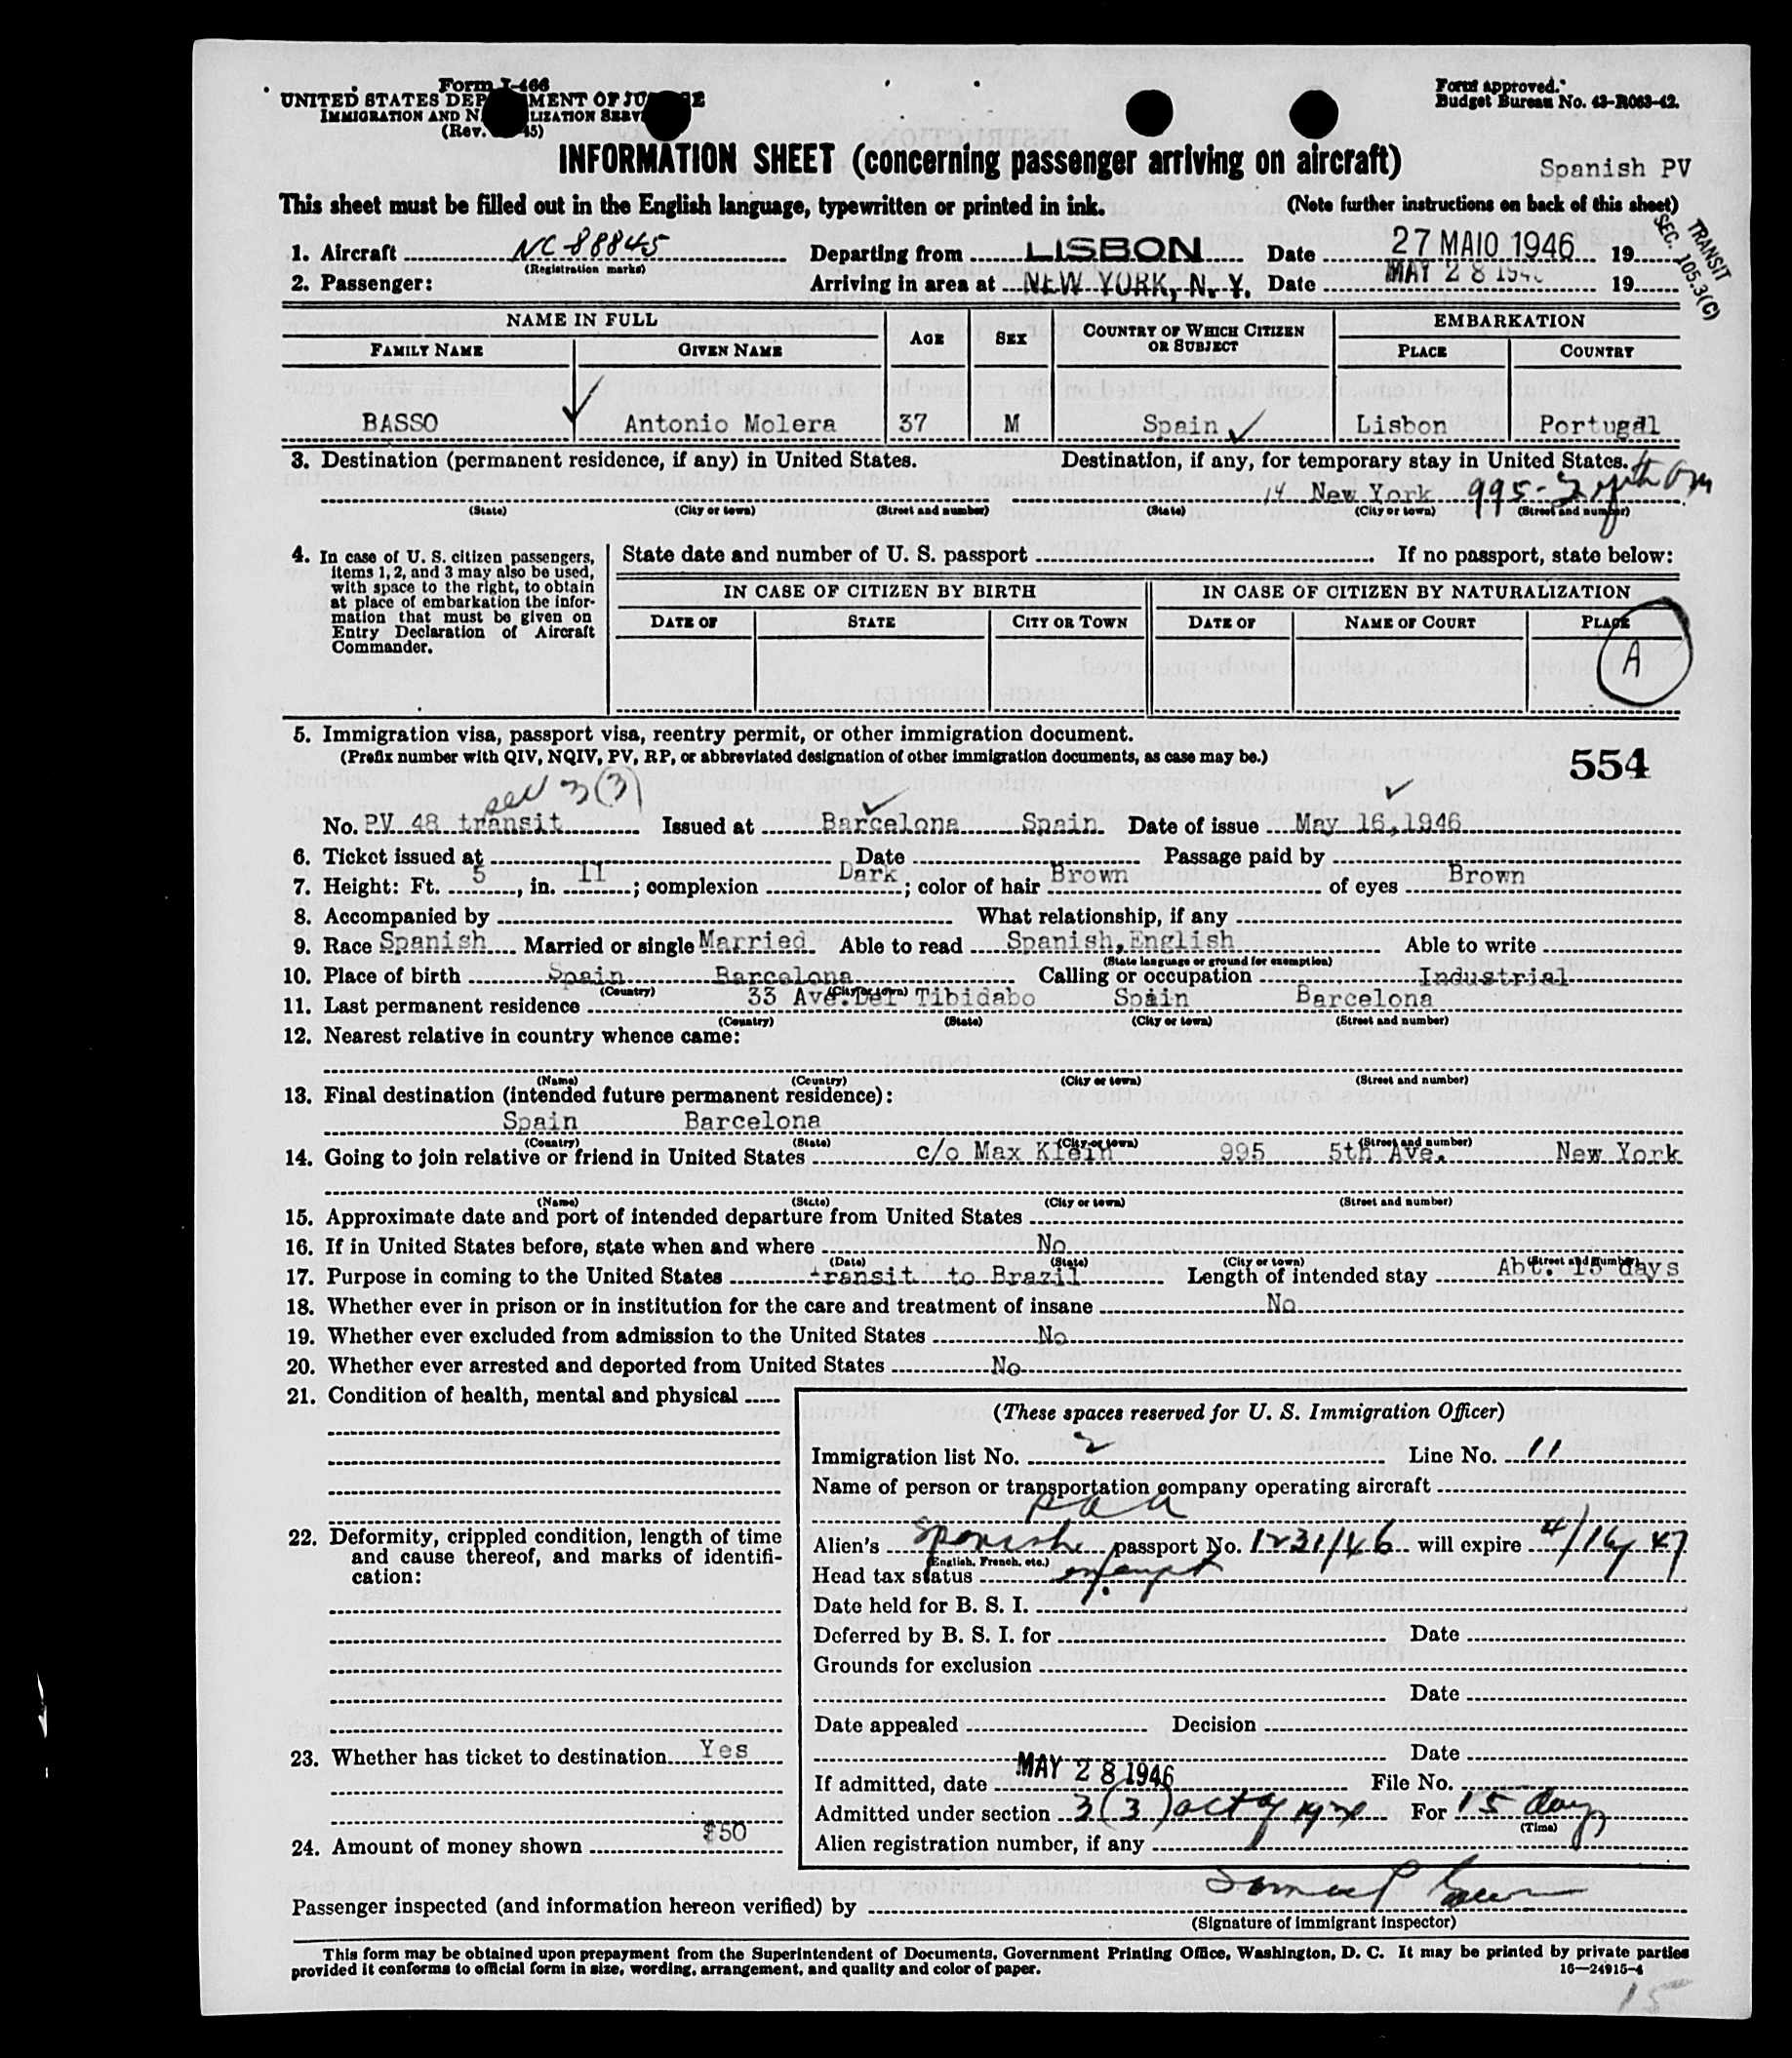 Form I-466
UNITED STATES DEPARTMENT OF JUSTICE
IMMIGRATION AND NATURALIZATION SERVICE
(Rev. 45)
Form approved.
Budget Bureau No. 43-R063-42.
INFORMATION SHEET (concerning passenger arriving on aircraft)
Spanish PV
This sheet must be filled out in the English language, typewritten or printed in ink. (Note further instructions on back of this sheet)
TRANSIT
SEC. 105.3(C)
1. Aircraft NC-88845 Departing from LISBON Date 27 MAIO 1946 19
(Registration marks)
2. Passenger: Arriving in area at NEW YORK, N. Y. Date MAY 28 1946 19
NAME IN FULL AGE SEX COUNTRY OF WHICH CITIZEN OR SUBJECT EMBARKATION
FAMILY NAME GIVEN NAME PLACE COUNTRY
BASSO Antonio Molera 37 M Spain Lisbon Portugal
3. Destination (permanent residence, if any) in United States. Destination, if any, for temporary stay in United States.
14 New York 995-5th
(State) (City or town) (Street and number) (State) (City or town) (Street and number)
4. In case of U. S. citizen passengers,
items 1, 2, and 3 may also be used,
with space to the right, to obtain
at place of embarkation the infor-
mation that must be given on
Entry Declaration of Aircraft
Commander.
State date and number of U. S. passport If no passport, state below:
IN CASE OF CITIZEN BY BIRTH IN CASE OF CITIZEN BY NATURALIZATION
DATE OF STATE CITY OR TOWN DATE OF NAME OF COURT PLACE
A
5. Immigration visa, passport visa, reentry permit, or other immigration document.
(Prefix number with QIV, NQIV, PV, RP, or abbreviated designation of other immigration documents, as case may be.)
554
sec 3(3)
No. PV 48 transit Issued at Barcelona Spain Date of issue May 16, 1946
6. Ticket issued at Date Passage paid by
7. Height: Ft. 5, in. 11; complexion Dark; color of hair Brown of eyes Brown
8. Accompanied by What relationship, if any
9. Race Spanish Married or single Married Able to read Spanish, English Able to write
(State language or ground for exemption)
10. Place of birth Spain Barcelona Calling or occupation Industrial
(Country) (City or town)
11. Last permanent residence 33 Ave. Del Tibidabo Spain Barcelona
(Country) (State) (City or town) (Street and number)
12. Nearest relative in country whence came:
(Name) (Country) (City or town) (Street and number)
13. Final destination (intended future permanent residence):
Spain Barcelona
(Country) (State) (City or town) (Street and number)
14. Going to join relative or friend in United States c/o Max Klein 995 5th Ave. New York
(Name) (State) (City or town) (Street and number)
15. Approximate date and port of intended departure from United States
16. If in United States before, state when and where No
(Date) (State) (City or town) (Street and number)
17. Purpose in coming to the United States transit to Brazil Length of intended stay Abt. 15 days
18. Whether ever in prison or in institution for the care and treatment of insane No
19. Whether ever excluded from admission to the United States No
20. Whether ever arrested and deported from United States No
21. Condition of health, mental and physical
22. Deformity, crippled condition, length of time
and cause thereof, and marks of identifi-
cation:
23. Whether has ticket to destination Yes
24. Amount of money shown $50
(These spaces reserved for U. S. Immigration Officer)
Immigration list No. 2 Line No. 11
Name of person or transportation company operating aircraft
P A A
Alien's Spanish passport No. 1231/46 will expire 4/16/47
(English, French, etc.)
Head tax status exempt
Date held for B. S. I.
Deferred by B. S. I. for Date
Grounds for exclusion
Date
Date appealed Decision
Date
If admitted, date MAY 28 1946 File No.
Admitted under section 3(3) act of 1924 For 15 days
(Time)
Alien registration number, if any
Passenger inspected (and information hereon verified) by
(Signature of immigrant inspector)
This form may be obtained upon prepayment from the Superintendent of Documents, Government Printing Office, Washington, D. C. It may be printed by private parties
provided it conforms to official form in size, wording, arrangement, and quality and color of paper.
16—24915-4
15